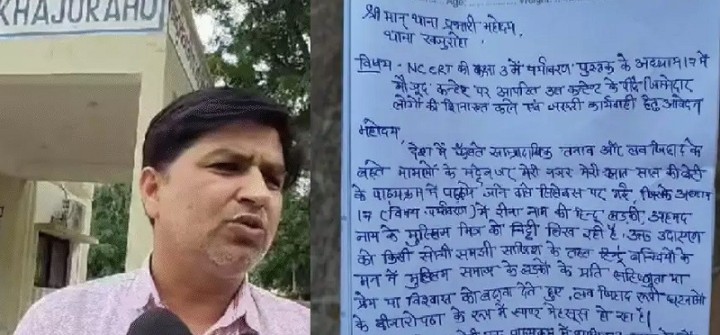 KHAJURAHO
श्रीमान् थाना प्रभारी महोदय
थाना खजुराहो,
विषय - NCERT की कक्षा 3 में पर्यावरण पुस्तक के अध्याय 17 में
मौजूद कन्टेंट पर आपत्ति उस कन्टेंट के पीछे जिम्मेदार
लोगों की शिनाख्त करने एवं जरूरी कार्यवाही हेतु आवेदन
महोदय,
देश में फैलते साम्प्रदायिक तनाव और लव जिहाद के
बढ़ते मामलों के मद्देनजर मेरी नजर मेरी सात साल की बेटी
के पाठ्यक्रम में पढ़ाये जाने वाले सिलेबस पर गई, जिसके अध्याय
17 (विषय पर्यावरण) में रीना नाम की हिन्दू लड़की, अहमद
नाम के मुस्लिम मित्र को चिट्ठी लिख रही है, उक्त उदाहरण
को किसी सोची समझी साजिश के तहत हिन्दू बच्चियों के
मन में मुस्लिम समाज के लड़कों के प्रति सहिष्णुता या
प्रेम या विश्वास को बढ़ावा देते हुए, लव जिहाद रूपी
के बीजारोपण के रूप में स्पष्ट महसूस हो रहा है।